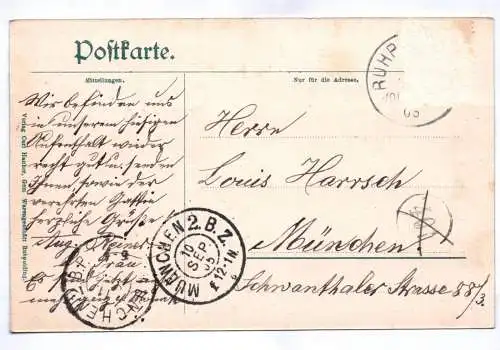 Postkarte.
Mitteilungen.
Nur für die Adresse.
Wir befinden uns
in unserem hiesigen
Aufenthalt wieder
recht gut u. senden
Ihnen sowie der
verehrten Gattin
herzliche Grüße
Aug.
Frau
Es
Herrn
Louis Harrsch
München
Schwanthaler Strasse 88/3
RUHP
05
MÜNCHEN 2. B.Z.
10
SEP
05
12-1N.
Verlag Carl